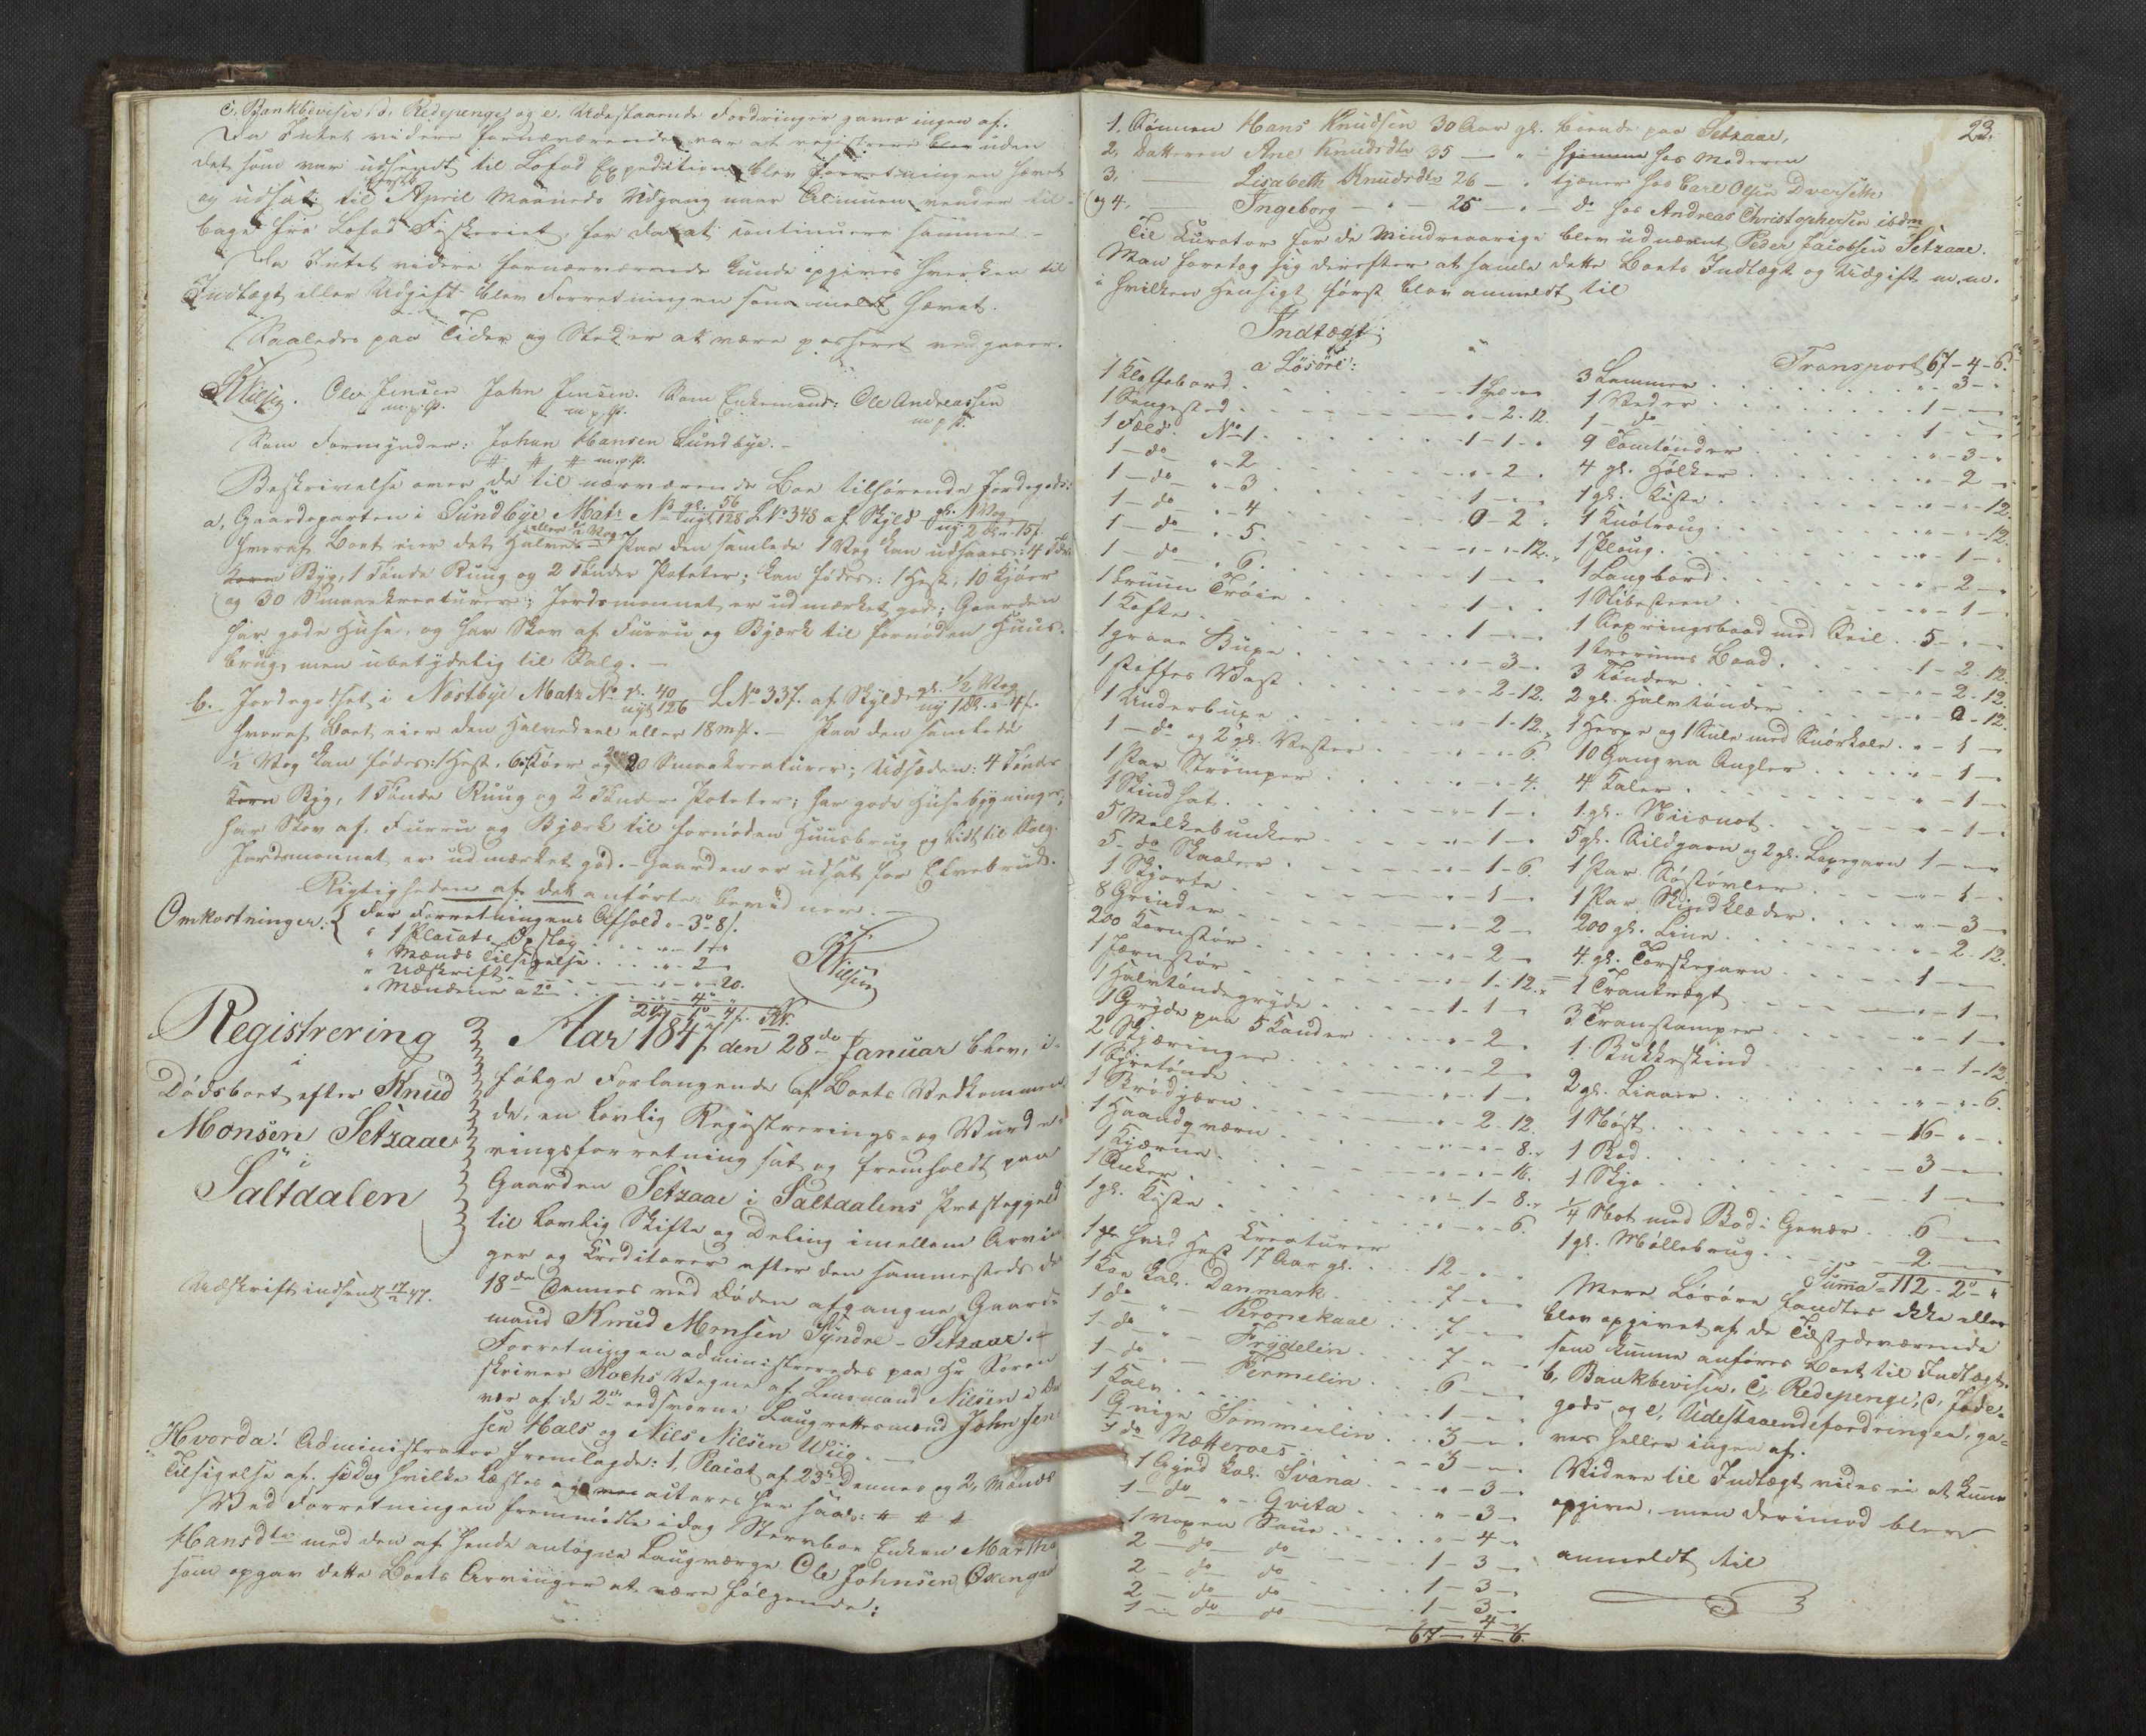 c, Bankbeviser, d, Redepenge og e, Udestaaende Fordringer gaves ingen af.
Da Intet videre forneværende var at registrere blev uden
det som var udsendt til Lofod Expedition, blev Forretningen hævet
og udsat til første April Maaneds Udgang naar Almuen vender til-
bage fra Lofod Fiskeriet, for da at continuere samme. -
Da Intet videre fornærværende kunde opgives hverken til
Indtægt eller Udgift blev Forretningen som meldt hævet.
Saaledes paa Tider og Sted er at være passeret vedgaaer.
KNilsen. Ole Jensen John Jensen. Som Enkemand: Ole Andreassen
m.p.P. m.p.P. m.p.P.
Som Formynder: Johan Hansen Sundbye. -
# # # m.p.P.
Beskrivelse over de til nærværende Boe tilhørende Jordegods:
a, Gaardeparten i Sundbye Matr. No gl. 56 nyt 128 L.No 348 af Skyld gl. 1 Vog ny 2 dlr. - 15 s.
hvoraf Boet eier det Halve eller 1/2 Vog - Paa den samlede 1 Vog kan udsaaes: 4 Tdr.
Korn Byg, 1 Tønde Ruug og 2 Tønder Poteter; kan fødes: 1 Hest, 10 Kjøer
og 30 Smaaekreaturer; Jordsmonnet er udmærket god; Gaarden
har gode Huse, og har Skov af Furru og Bjærk til fornøden Huus-
brug, men ubetydelig til Salg. -
b. Jordegodset i Næstbye Matr No gl. 40 nyt 126 L No 337. af Skyld gl. 1/2 Vog ny 1 Dlr. - 4 s.
hvoraf Boet eier den Halvedeel eller 18 mk. - Paa den samlede
1/2 Vog kan fødes: 1 Hest, 6 Kjøer og 20 Smaaekreaturer; Udsæden: 4 Tønder
Korn Byg, 1 Tønde Ruug og 2 Tønder Poteter; har gode Husebygninger;
har Skov af Furru og Bjærk til fornøden Huusbrug og lidt til Salg.
Jordsmonnet er udmærket god. - Gaarden er udsat for Elvebrud.
Rigtigheden af det anførte bevidner. -
Omkostninger: { For Forretningens Afhold " - 3 - 8 s.
" 1 Placats Opslag . . " - 1 - "
" Mænds Tilsigelse . . . " - 2 -
" Udskrift . . . " - " - 20.
" Mændene a 2 . . . " - 4 - "
KNilsen
Registrering
i
Dødsboet efter Knud
Monsen Setzaae
i
Saltdalen
Udskrift indsendt 17/2 47.
Aar 1847 den 28de Januar blev, i-
følge Forlangende af Boets Vedkommen-
de, en lovlig Registrerings- og Vurde-
ringsforretning sat og fremholdt paa
Gaarden Setzaae i Saltdalens Præstegjeld
til lovlig Skifte og Deling imellem Arvin-
ger og Creditorer efter den sammesteds d.
18de Dennes ved Døden afgangne Gaard-
mand Knud Monsen Syndre-Setzaae. -
Forretningen administreredes paa Hr Soren-
skriver Kochs Vegne af Lensmand Nilsen i Over-
vær af de 2de edsvorne Laugrettesmænd John Jen-
sen Hals og Nils Nilsen Wiig. -
Hvorda! Administrator fremlagde: 1, Placat af 23de Dennes og 2, Mænds
Tilsigelse af s. Dag hvilke læstes og acteres her saal: # # #
Ved Forretningen fremmødte idag Stervboe Enken Martha
Hansdtr med den af hende antagne Laugværge Ole Johnsen Oxengaard
som opgav dette Boets Arvinger at være følgende:
23.
1. Sønnen Hans Knudsen 30 Aar gl. boende paa Setzaae,
2, Datteren Ane Knudsdtr 35 — " - hjemme hos Moderen
3, — Lisabeth Knudsdtr 26 — " tjæner hos Carl Olsen Dverseth
og 4, — Ingeborg — " — 25 — " — do hos Andreas Christophersen ibdm
Til Curator for de Mindreaarige blev udnævnt Peder Jacobsen Setzaae.
Man foretog sig derefter at samle dette Boets Indtægt og Udgift m. m.
i hvilken Hensigt først blev anmeldt til
Indtægt:
a Løsøre:
1 Klaffebord . . . 1 Spd " - "
1 Sengested . . . " - 2 - 12.
1 Fæld No 1 . . . 1 - 1 - "
1 — do " - 2 . . . " - 2 -
1 — do " - 3 . . . 1 - " -
1 — do " - 4 . . . 0 - 2 -
1 — do " - 5 . . . " - " - 12.
1 — do " 6 . . . 1 - " -
1 bruun Trøie . . . 1 - " -
1 Kofte . . . 1 - " -
1 graae Buxe . . . " - 3 -
1 stoffes Vest . . . " - 2 - 12.
1 Underbuxe . . . " - 1 - 12.
1 — do og 2 gl. Vester . . . " - " - 6.
1 Par Strømper . . . " - " - 4.
1 Skind hat . . . " - 1 -
5 Melkebunker . . . " - 1 -
5 - do Skaaler . . . " - 1 - 6.
1 Skjorte . . . " - 1 -
8 Grinder . . . " - 2 -
200 Kornstør . . . " - 2 -
1 Jernstør . . . " - 1 - 12.
1 Halvtøndegryde . . . 1 - 1 -
1 Gryde paa 5 Kander . . . " - 2 -
2 Skjæringer . . . " - 2 -
1 Syretønde . . . " - 1 -
1 Brødjærn . . . " - 2 - 12.
1 Haandqværn . . . " - " - 8.
1 Kjærne . . . " - " - 16.
1 Anker . . . " - 1 - 8.
1 gl. Kiste . . . " - " - 6
Creaturer
1 gl. hvid Hest 17 Aar gl. . . 12 - " -
1 Koe kal. Danmark . . . 7 - " -
1 do " - Kronekaal . . . 7 - " -
1 - do " - Frydelin . . . 7 - " -
1 - do " - Permelin . . . 6 - " -
1 Kalv . . . 1 - " -
1 Qvige Sommerlin . . . 3 - " -
1 do Nætteroes . . . 3 - " -
1 Gjed kal. Svana . . . " - 3 -
1 - do " - Qvita . . . " - 3 -
1 voxen Saue . . . " - 4 -
2 — do do . . . 1 - 3 -
2 — do do . . . 1 - 3 -
2 — do do . . . 1 - 3 -
1 — do do . . . " - 4 -
67 — 4 — 6.
Transport 67 - 4 - 6.
3 Lammer . . . " - 3 -
1 Væder . . . 1 - " -
1 - do . . . 1 - " -
9 Tomtønder . . . " - 3 -
4 gl. Hølker . . . " - 2 -
1 gl. Kiste . . . " - " - 12.
1 Knøtroug . . . " - " - 12.
1 Ploug . . . " - 1 -
1 Langbord . . . " - 2 -
1 Slibesteen . . . " - 1 -
1 Kepringsbaad med Seil . . 5 - " -
1 Baad . . . 1 - 2 - 12.
3 Tønder . . . " - 2 - 12.
2 gl. Halvtønder . . . " - 0 - 12.
1 Hespe og 1 Kule med . . " - 1 -
10 Gangva Angler . . . " - 1 -
4 Kaler . . . " - 1 -
1 gl. Niisnot . . . " - 1 -
5 gl. Sildgarn og 2 gl. Laxegarn 1 - " -
1 Par Søstøvler . . . " - 1 -
1 Par Skindklæder . . . " - 3 -
200 gl. Line . . . " - 2 - 12.
4 gl. Torskegarn . . . 1 - " -
1 Trankrægt . . . " - 1 -
3 Transtamper . . . " - 1 -
1 Bukkeskind . . . " - 1 - 12.
2 gl. Liaaer . . . " - " - 6.
1 Nøst . . . 16 - " -
1 Bod . . . 3 - " -
1 Skjo . . . 1 - " -
1/4 Not med Bod i Gevær . . 6 - " -
1 gl. Møllebrug . . . 2 - " -
Suma = 112 - 2 - "
Mere Løsøre fandtes ikke eller
blev opgivet af de Tilstedeværende
som kunne anføres Boet til Indtægt.
b, Bankbeviser, c, Redepenge, d, Jorde-
gods, og e, Udestaaendefordringer, ga-
ves heller ingen af.
Videre til Indtægt vides ei at kunne
opgive, men derimod blev
anmeldt til